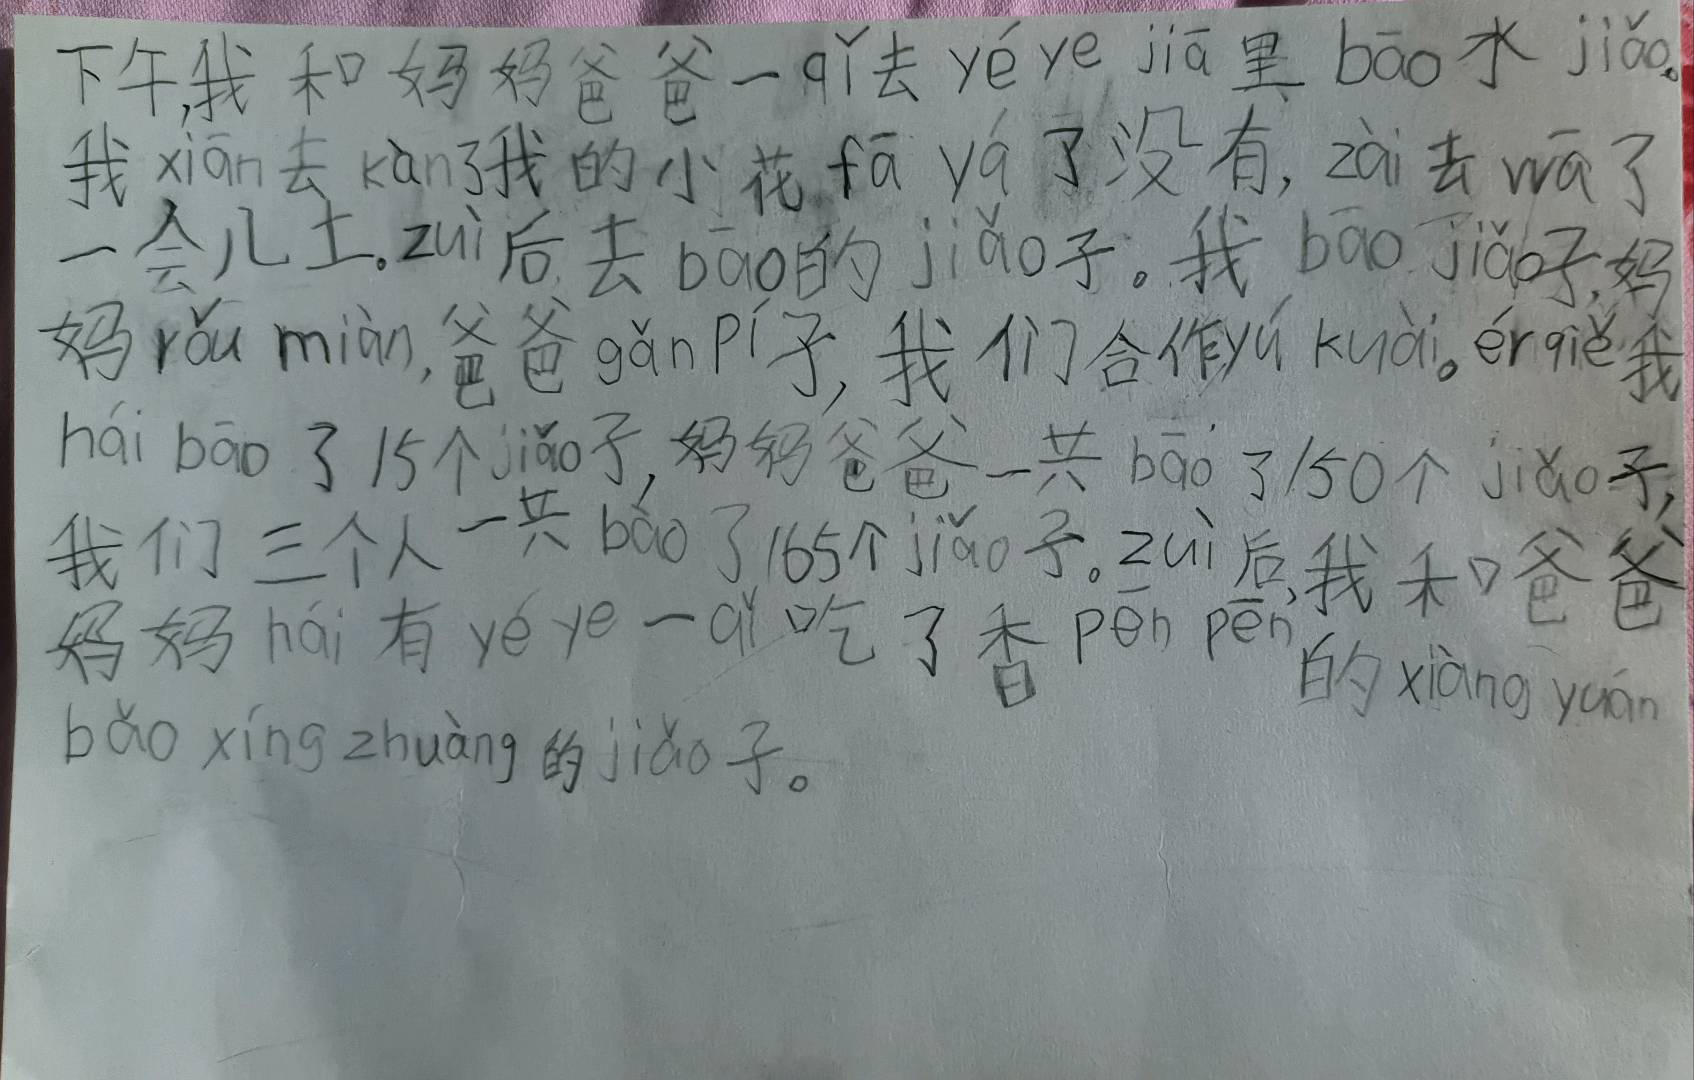 下午,我和妈妈爸爸一qǐ去yéye jiā里bāo水jiǎo。
我xiān去kàn了我的小花fā yá了没有,zài去wā了
一会儿土。zuì后去bāo的jiǎo子。我bāo jiǎo子,妈
妈rǒu miàn,爸爸gǎn Pí子,我们合作yú kuài。ér qiě我
hái bāo了15个jiǎo子,妈妈爸爸一共bāo了150个jiǎo子,
我们三个人一共bāo了165个jiǎo子。zuì后,我和爸爸
妈妈hái有yéye一qǐ吃了香pēn pēn的xiàng yuán
bǎo xíng zhuàng的jiǎo子。